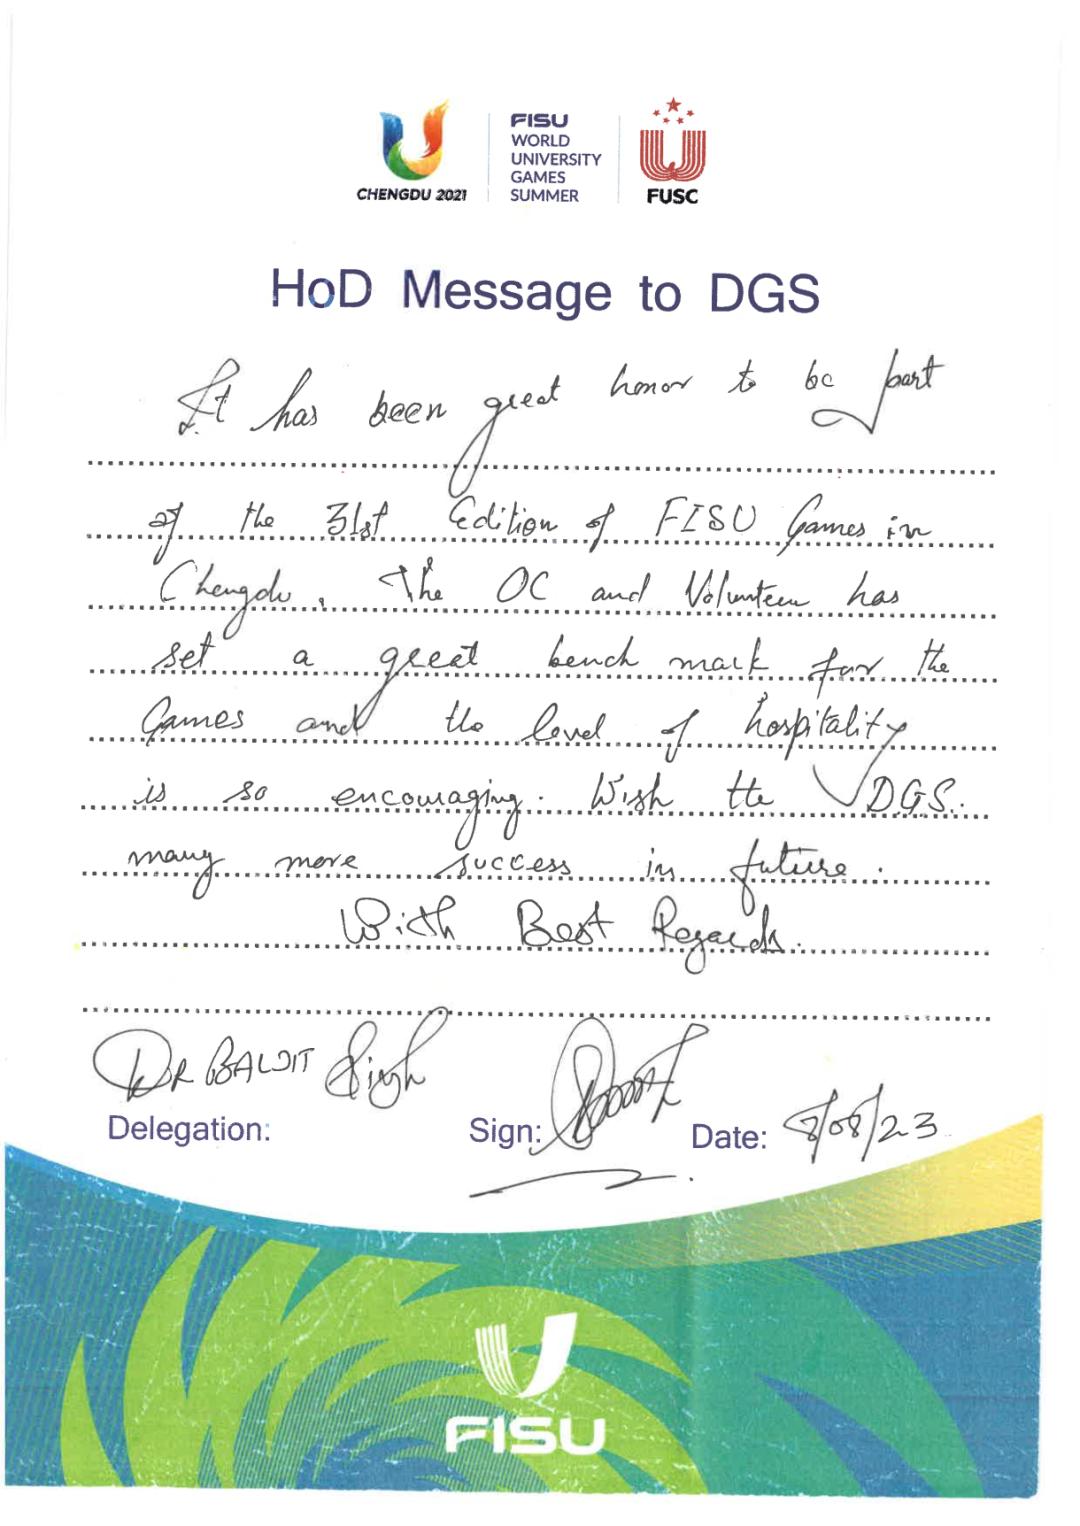 CHENGDU 2021
FISU
WORLD
UNIVERSITY
GAMES
SUMMER
FUSC
HoD Message to DGS
It has been great honor to be part
of the 31st Edition of FISU Games in
Chengdu. The OC and Volunteer has
set a great bench mark for the
Games and the level of hospitality
is so encouraging. Wish the D.G.S.
many more success in future.
With Best Regards.
DR BALJIT Singh
Delegation:
Sign:
Date: 8/08/23
FISU